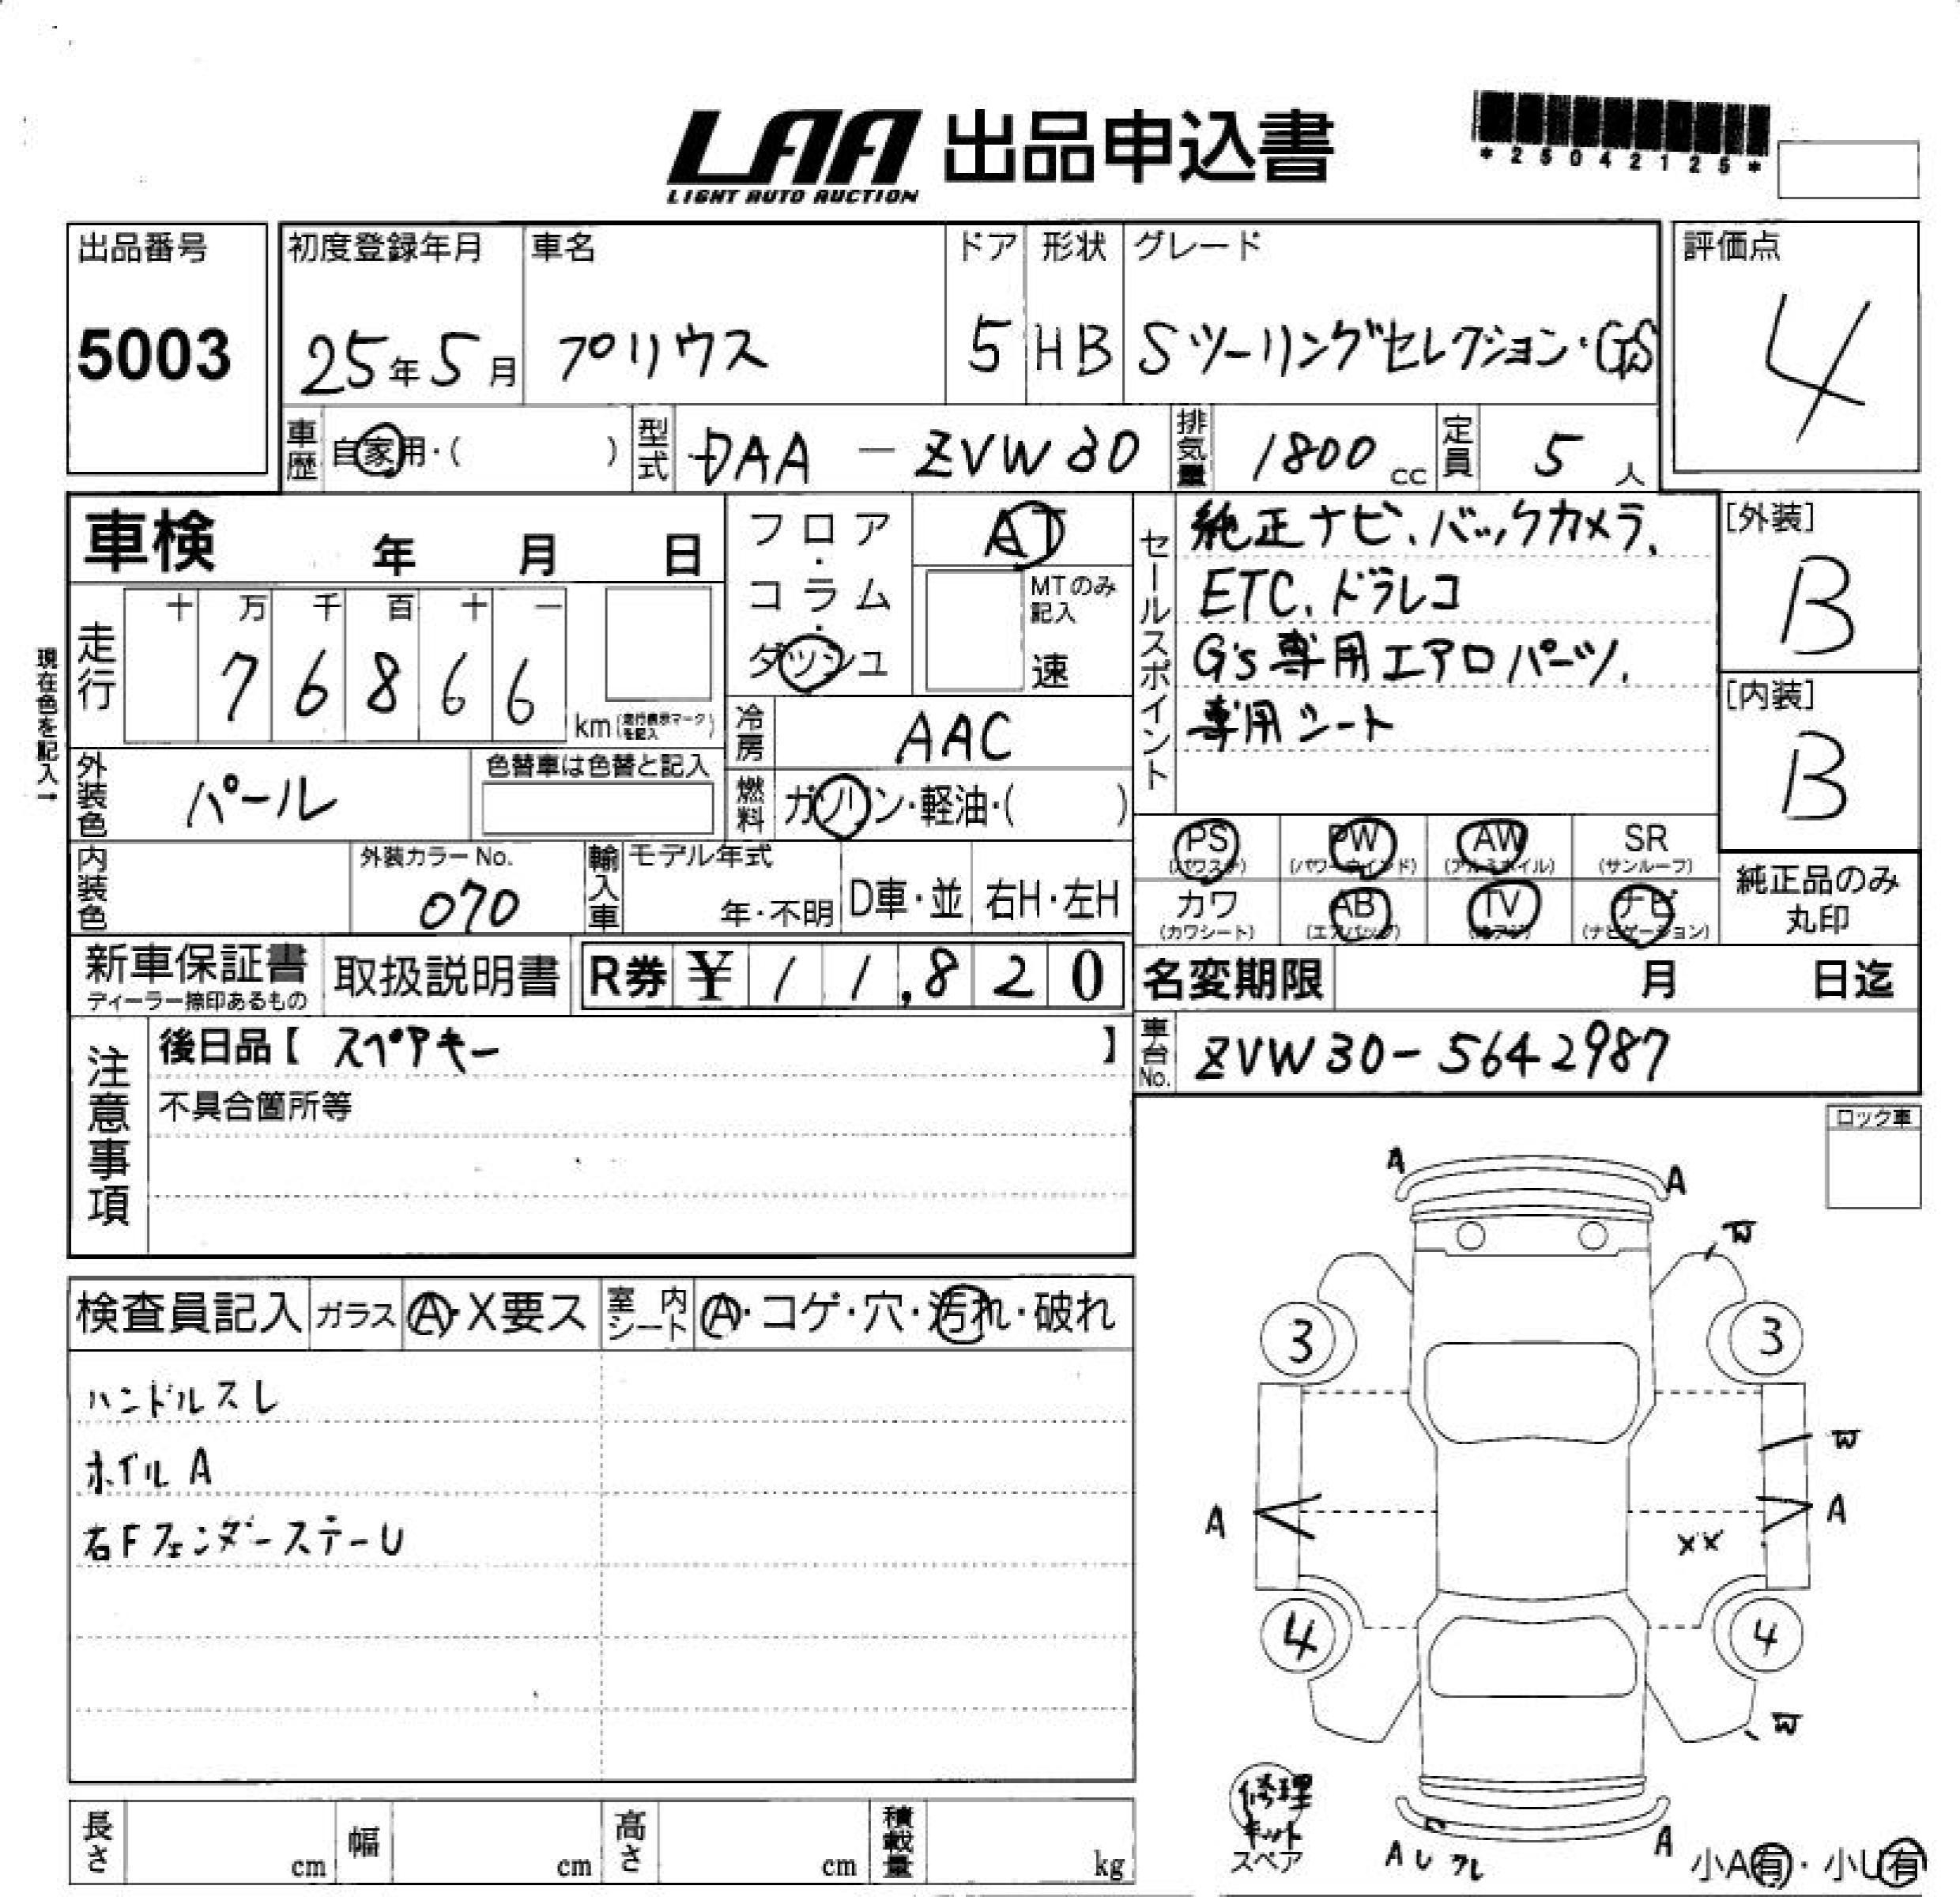 LAA 出品申込書
LIGHT AUTO AUCTION
*25042125*
出品番号
5003
初度登録年月
25年5月
車名
プリウス
ドア
5
形状
HB
グレード
Sツーリングセレクション・G's
評価点
4
車歴
自家用・( )
型式
DAA - ZVW30
排気量
1800 cc
定員
5 人
車検 年 月 日
現在色を記入→
走行
十 万 千 百 十 一
7 6 8 6 6
km (走行表示マークを記入)
フロア・コラム・ダッシュ
AT
MTのみ記入
速
冷房
AAC
燃料
ガソリン・軽油・( )
外装色
パール
色替車は色替と記入
内装色
外装カラーNo.
070
輸入車
モデル年式
年・不明
D車・並
右H・左H
セールスポイント
純正ナビ、バックカメラ、
ETC、ドラレコ
G's専用エアロパーツ、
専用シート
[外装]
B
[内装]
B
PS (パワステ)
PW (パワーウインド)
AW (アルミホイル)
SR (サンルーフ)
カワ (カワシート)
AB (エアバッグ)
TV
ナビ (ナビゲーション)
純正品のみ丸印
新車保証書
ディーラー捺印あるもの
取扱説明書
R券 ¥11,820
名変期限 月 日迄
注意事項
後日品【 スペアキー 】
不具合箇所等
車台No.
ZVW30-5642987
ロック車
検査員記入
ガラス
A・X要ス
室内シート
A・コゲ・穴・汚れ・破れ
ハンドルスレ
ホイルA
右Fフェンダーステー U
長さ cm
幅 cm
高さ cm
積載量 kg
A
A
W
3
3
W
A
A
XX
4
4
W
修理
キット
スペア
A U フレ
A
小A有・小U有